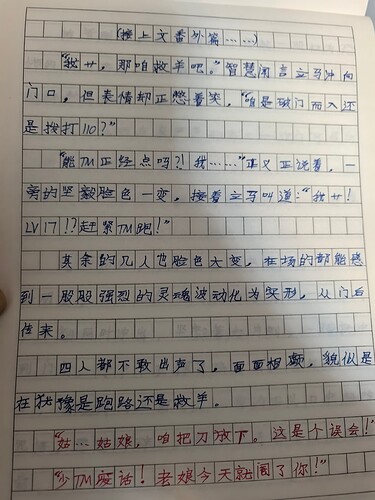 (接上文番外篇……)
“我艹，那咱救羊吧。”智慧闻言立马冲向
门口，但表情却正憋着笑，“咱是破门而入还
是拨打110？”
“能TM正经点吗？！我……”正义正说着，一
旁的坚毅脸色一变，接着立马叫道：“我艹！
LV17！？赶紧TM跑！”
其余的几人也脸色大变，在场的都能感
到一股股强烈的灵魂波动化为实形，从门后
传来。
四人都不敢出声了，面面相觑，貌似是
在犹豫是跑路还是救羊。
“姑…姑娘，咱把刀放下。这是个误会！”
“少TM废话！老娘今天就阉了你！”